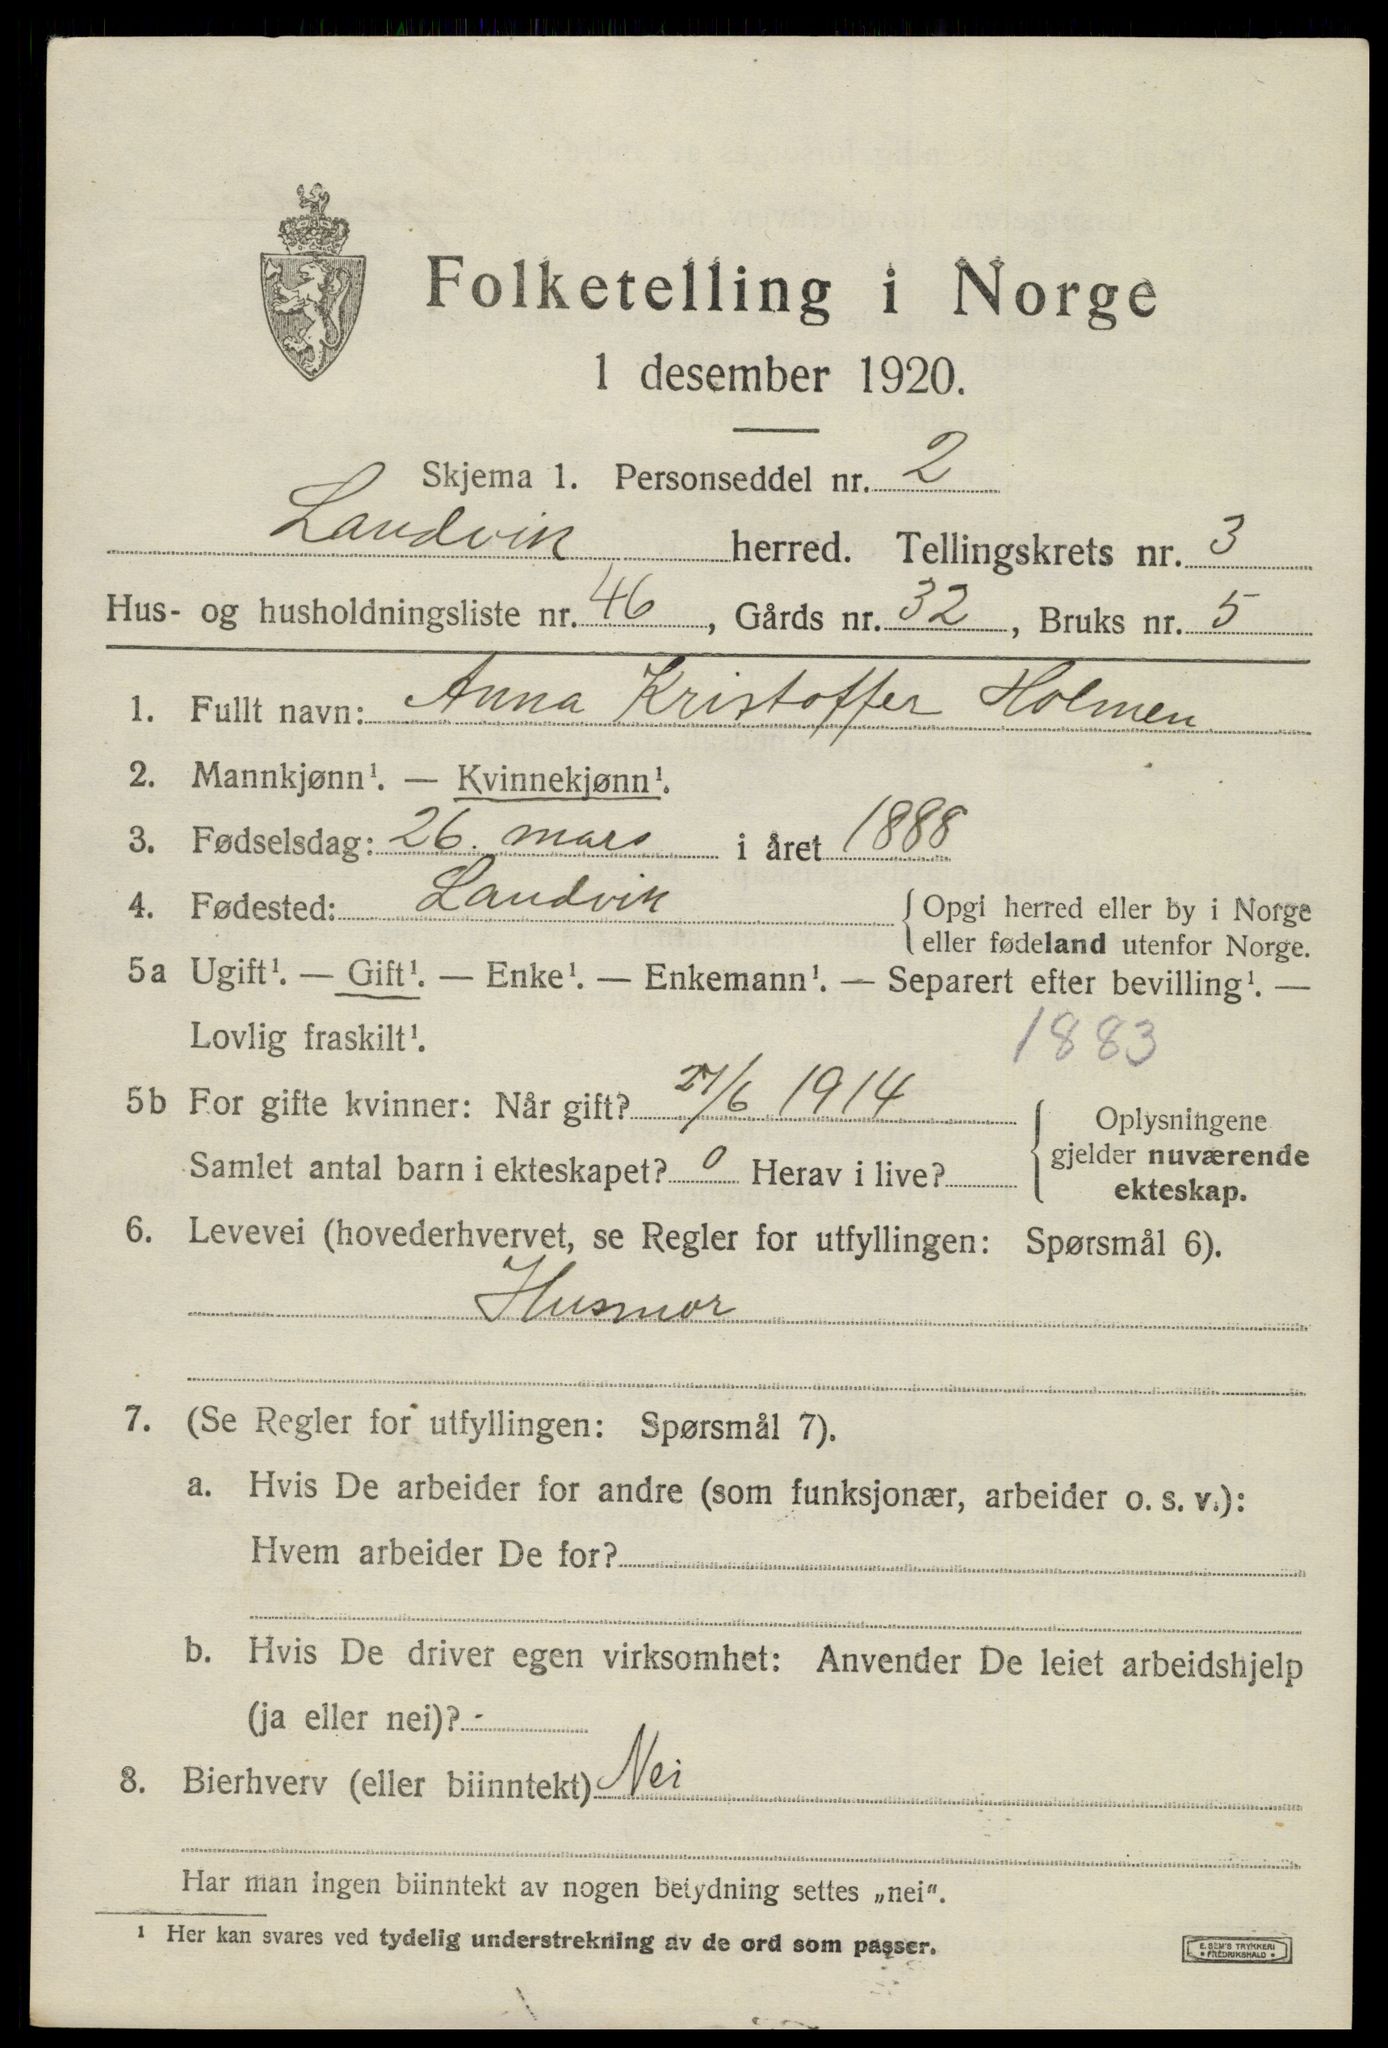 Folketelling i Norge
1 desember 1920.
Skjema 1. Personseddel nr. 2
Landvik herred. Tellingskrets nr. 3
Hus- og husholdningsliste nr. 46, Gårds nr. 32, Bruks nr. 5
1. Fullt navn: Anna Kristoffer Holmen
2. Mannkjønn¹. — Kvinnekjønn¹.
3. Fødselsdag: 26. mars i året 1888
4. Fødested: Landvik {Opgi herred eller by i Norge
eller fødeland utenfor Norge.
5a Ugift¹. — Gift¹. — Enke¹. — Enkemann¹. — Separert efter bevilling¹. —
Lovlig fraskilt¹.
1883
5b For gifte kvinner: Når gift? 27/6 1914
Samlet antal barn i ekteskapet? 0 Herav i live?
{Oplysningene
gjelder nuværende
ekteskap.
6. Levevei (hovederhvervet, se Regler for utfyllingen: Spørsmål 6).
Husmor
7. (Se Regler for utfyllingen: Spørsmål 7).
a. Hvis De arbeider for andre (som funksjonær, arbeider o. s. v.):
Hvem arbeider De for?
b. Hvis De driver egen virksomhet: Anvender De leiet arbeidshjelp
(ja eller nei)? -
8. Bierhverv (eller biinntekt) Nei
Har man ingen biinntekt av nogen betydning settes „nei".
¹ Her kan svares ved tydelig understrekning av de ord som passer.
E. SEM'S TRYKKERI
• FREDRIKSHALD •